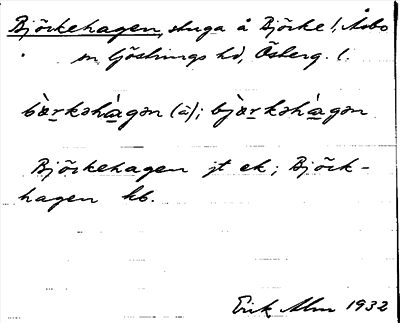 Björkehagen, stuga å Björke !, Åsbo
sn, Göstrings hd, Österg. l.
bàrkəhágən (ä); bjàrkəhágən
Björkehagen jt ek; Björk-
hagen kb.
Erik Alm 1932